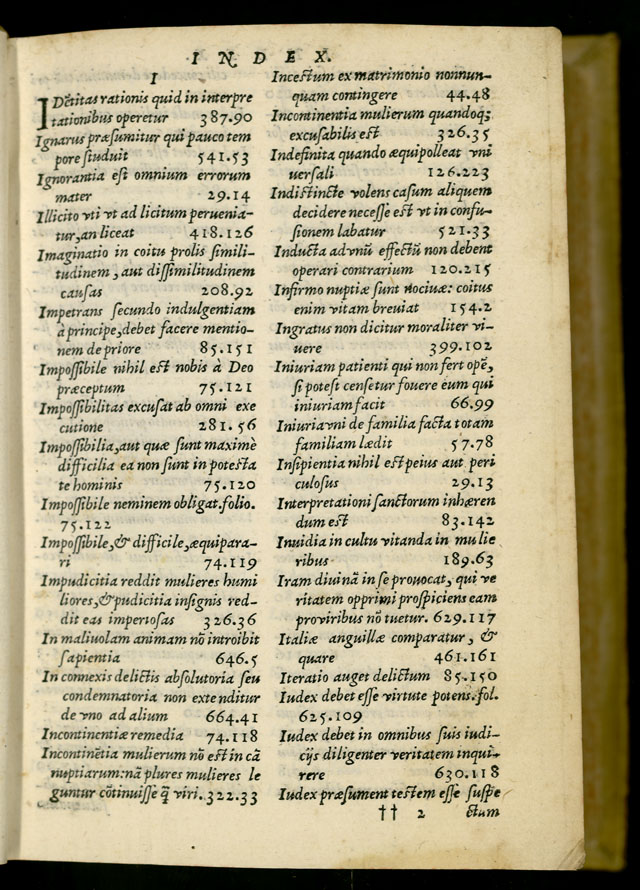 INDEX.
I
IDẽtitas rationis quid in interpre
tationibus operetur 387.90
Ignarus præsumitur qui pauco tem
pore studuit 541.53
Ignorantia est omnium errorum
mater 29.14
Illicito vti vt ad licitum peruenia-
tur, an liceat 418.126
Imaginatio in coitu prolis simili-
tudinem, aut dissimilitudinem
causas 208.92
Impetrans secundo indulgentiam
à principe, debet facere mentio-
nem de priore 85.151
Impossibile nihil est nobis à Deo
præceptum 75.121
Impossibilitas excusat ab omni exe
cutione 281.56
Impossibilia, aut quæ sunt maximè
difficilia ea non sunt in potesta
te hominis 75.120
Impossibile neminem obligat. folio.
75.122
Impossibile, & difficile, æquipara-
ri 74.119
Impudicitia reddit mulieres humi
liores, & pudicitia insignis red-
dit eas imperiosas 326.36
In maliuolam animam nõ introibit
sapientia 646.5
In connexis delictis absolutoria seu
condemnatoria non extenditur
de vno ad alium 664.41
Incontinentiæ remedia 74.118
Incontinẽtia mulierum nõ est in cã
nuptiarum: nã plures mulieres le
guntur cõtinuisse q̃ viri. 322.33
Incestum ex matrimonio nonnun-
quam contingere 44.48
Incontinentia mulierum quandoq;
excusabilis est 326.35
Indefinita quando æquipolleat vni
uersali 126.223
Indistincte volens casum aliquem
decidere necesse est vt in confu-
sionem labatur 521.33
Inducta ad vnũ effectũ non debent
operari contrarium 120.215
Infirmo nuptiæ sunt nociuæ: coitus
enim vitam breuiat 154.2
Ingratus non dicitur moraliter vi-
uere 399.102
Iniuriam patienti qui non fert opẽ,
si potest censetur fouere eum qui
iniuriam facit 66.99
Iniuria vni de familia facta totam
familiam lædit 57.78
Insipientia nihil est peius aut peri
culosus 29.13
Interpretationi sanctorum inhæren
dum est 83.142
Inuidia in cultu vitanda in mulie
ribus 189.63
Iram diuinã in se prouocat, qui ve
ritatem opprimi prospiciens eam
pro viribus nõ tuetur. 629.117
Italiæ anguillæ comparatur, &
quare 461.161
Iteratio auget delictum 85.150
Iudex debet esse virtute potens. fol.
625.109
Iudex debet in omnibus suis iudi-
cijs diligenter veritatem inqui-
rere 630.118
Iudex præsument testem esse suspe
†† 2 ctum